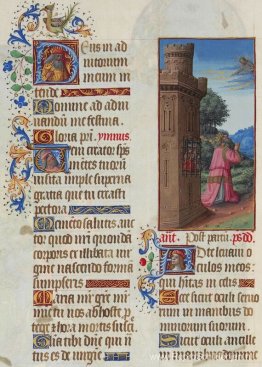 Deus in ad
iutorium
meum in
tende
Domine ad adiu
vandū me festina.
Gloria pri. ymnus.
Veni creator sps
mētes tuorū
visita imple superna
gratia que tu creasti
pectora
Memēto salutis auc
tor quod nri quondā
corporis ex illibata vir
gine nascendo formā
sumpseris
Maria mr grē mr
mie tu nos ab hoste p
tege & hora mortis susci
Gloria tibi dñe qui na
tus es de virgīe
ant. Post partū. ps. dd
Ad te levavi o
culos meos:
qui hitas in celis
Ecce sicut oculi servo
rum in manibus do
minorum suorum.
Sicut oculi ancille
in manibus domine